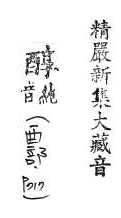 精嚴新集大藏音
音(酉部. P017)